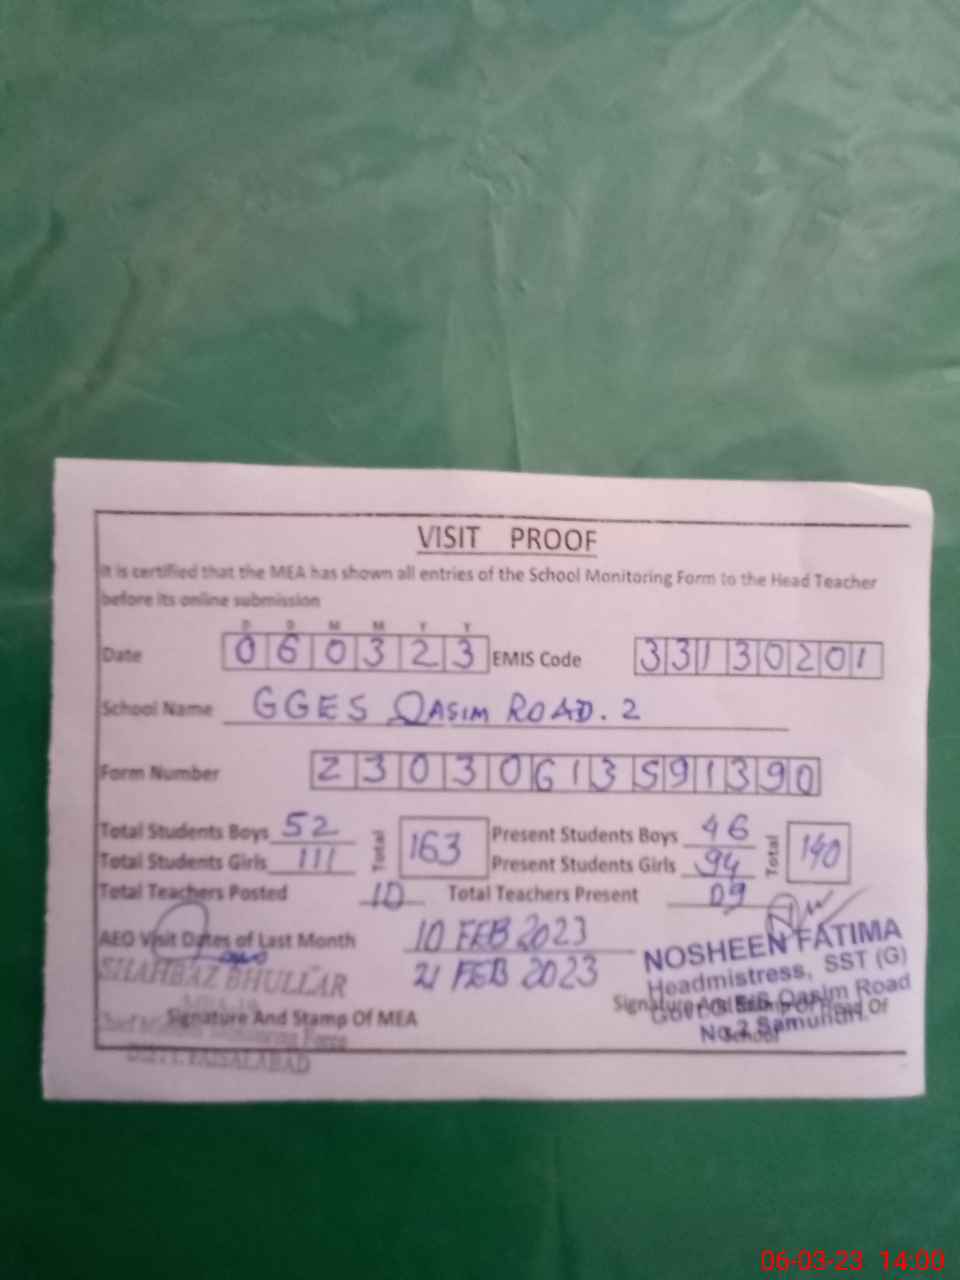 VISIT PROOF
It is certified that the MEA has shown all entries of the School Monitoring Form to the Head Teacher
before its online submission
D D M M Y Y
Date 060323 EMIS Code 33130201
School Name GGES QASIM ROAD. 2
Form Number 23030613591390
Total Students Boys 52 Total 163 Present Students Boys 46 Total 140
Total Students Girls 111 Present Students Girls 94
Total Teachers Posted 10 Total Teachers Present 09
AEO Visit Dates of Last Month 10 FEB 2023
21 FEB 2023
SHAHBAZ BHULLAR
Signature And Stamp Of MEA
Monitoring Force
DISTT. FAISALABAD
NOSHEEN FATIMA
Headmistress, SST (G)
Govt. Qasim Road
No.2 Samundri.
Signature And Stamp Of Head Of
School
06-03-23 14:00